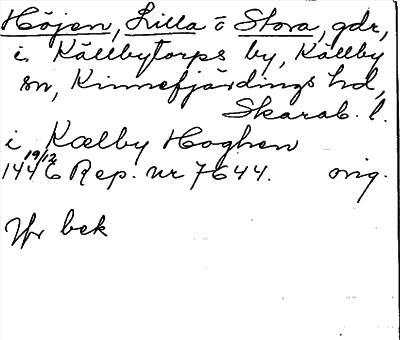 Höjen, Lilla o Stora, gdr,
i Källbytorps by, Källby
sn, Kinnefjärdings hd,
Skarab. l.
i Kælby Hoghen
1446 19/12 Rep. nr 7644. orig.
Yfr bek